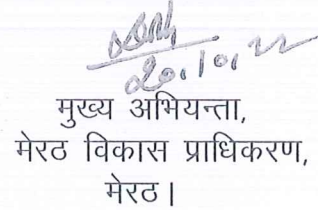 20/10/22
मुख्य अभियन्ता,
मेरठ विकास प्राधिकरण,
मेरठ।